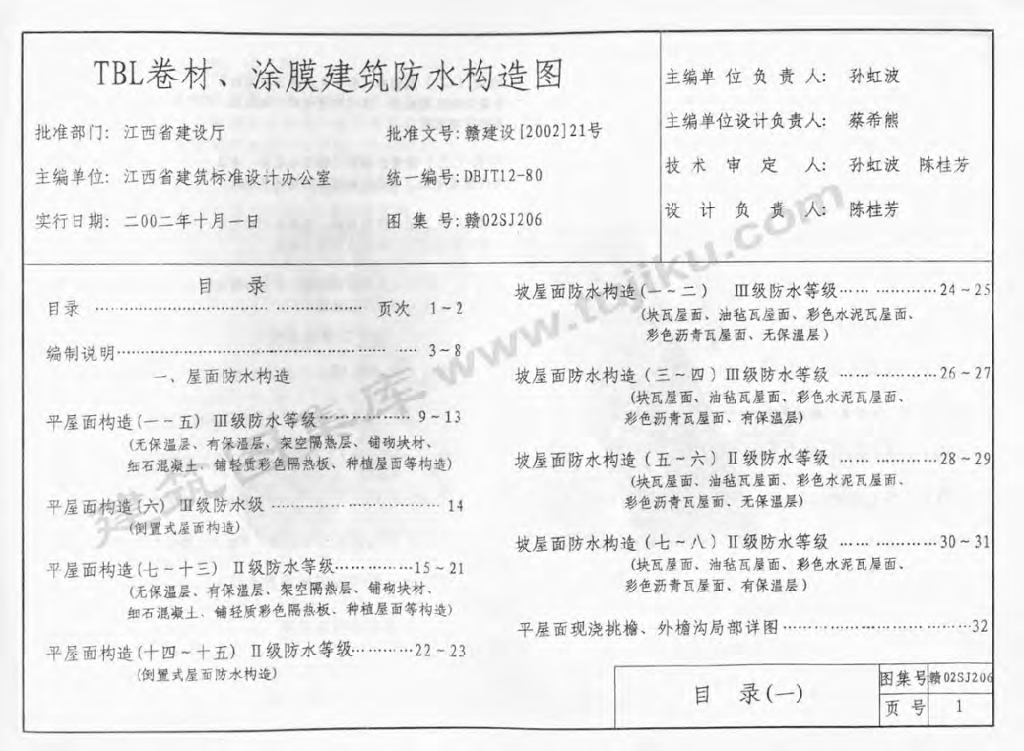 TBL卷材、涂膜建筑防水构造图
批准部门: 江西省建设厅
批准文号: 赣建设[2002]21号
主编单位: 江西省建筑标准设计办公室
统一编号: DBJT12-80
实行日期: 二00二年十月一日
图 集 号: 赣02SJ206
主编单位负责人: 孙虹波
主编单位设计负责人: 蔡希熊
技术审定人: 孙虹波 陈桂芳
设计负责人: 陈桂芳
目 录
目录 …………………………………… 页次 1~2
编制说明…………………………………… 3~8
一、屋面防水构造
平屋面构造(一~五) Ⅲ级防水等级……………… 9~13
(无保温层、有保温层、架空隔热层、铺砌块材、
细石混凝土、铺轻质彩色隔热板、种植屋面等构造)
平屋面构造(六) Ⅲ级防水级 ………………………… 14
(倒置式屋面构造)
平屋面构造(七~十三) Ⅱ级防水等级…………… 15~21
(无保温层、有保温层、架空隔热层、铺砌块材、
细石混凝土、铺轻质彩色隔热板、种植屋面等构造)
平屋面构造(十四~十五) Ⅱ级防水等级………… 22~23
(倒置式屋面防水构造)
坡屋面防水构造(一~二) Ⅲ级防水等级……………… 24~25
(块瓦屋面、油毡瓦屋面、彩色水泥瓦屋面、
彩色沥青瓦屋面、无保温层)
坡屋面防水构造(三~四)Ⅲ级防水等级 ……………… 26~27
(块瓦屋面、油毡瓦屋面、彩色水泥瓦屋面、
彩色沥青瓦屋面、有保温层)
坡屋面防水构造(五~六)Ⅱ级防水等级 ……………… 28~29
(块瓦屋面、油毡瓦屋面、彩色水泥瓦屋面、
彩色沥青瓦屋面、无保温层)
坡屋面防水构造(七~八)Ⅱ级防水等级 ……………… 30~31
(块瓦屋面、油毡瓦屋面、彩色水泥瓦屋面、
彩色沥青瓦屋面、有保温层)
平屋面现浇挑檐、外檐沟局部详图………………………… 32
目 录(一)
图集号 赣02SJ206
页 号 1
建筑图集库 www.tujiku.com